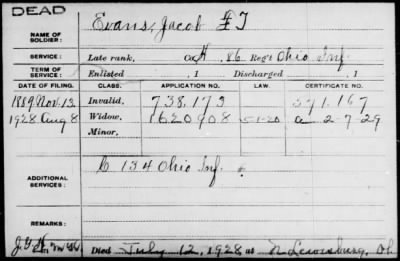 DEAD
NAME OF SOLDIER: Evans, Jacob
SERVICE: Late rank, Co. H, 86 Reg't Ohio Inf.
TERM OF SERVICE: Enlisted , 1 Discharged , 1
DATE OF FILING. CLASS. APPLICATION NO. LAW. CERTIFICATE NO.
1889 Nov. 12 Invalid, 738,173 571,167
1928 Aug 8 Widow, 1620908 5-1-20 a 2-7-29
Minor,
ADDITIONAL SERVICES: C 134 Ohio Inf.
REMARKS:
Died July 12, 1928 at N Lewisburg, Oh